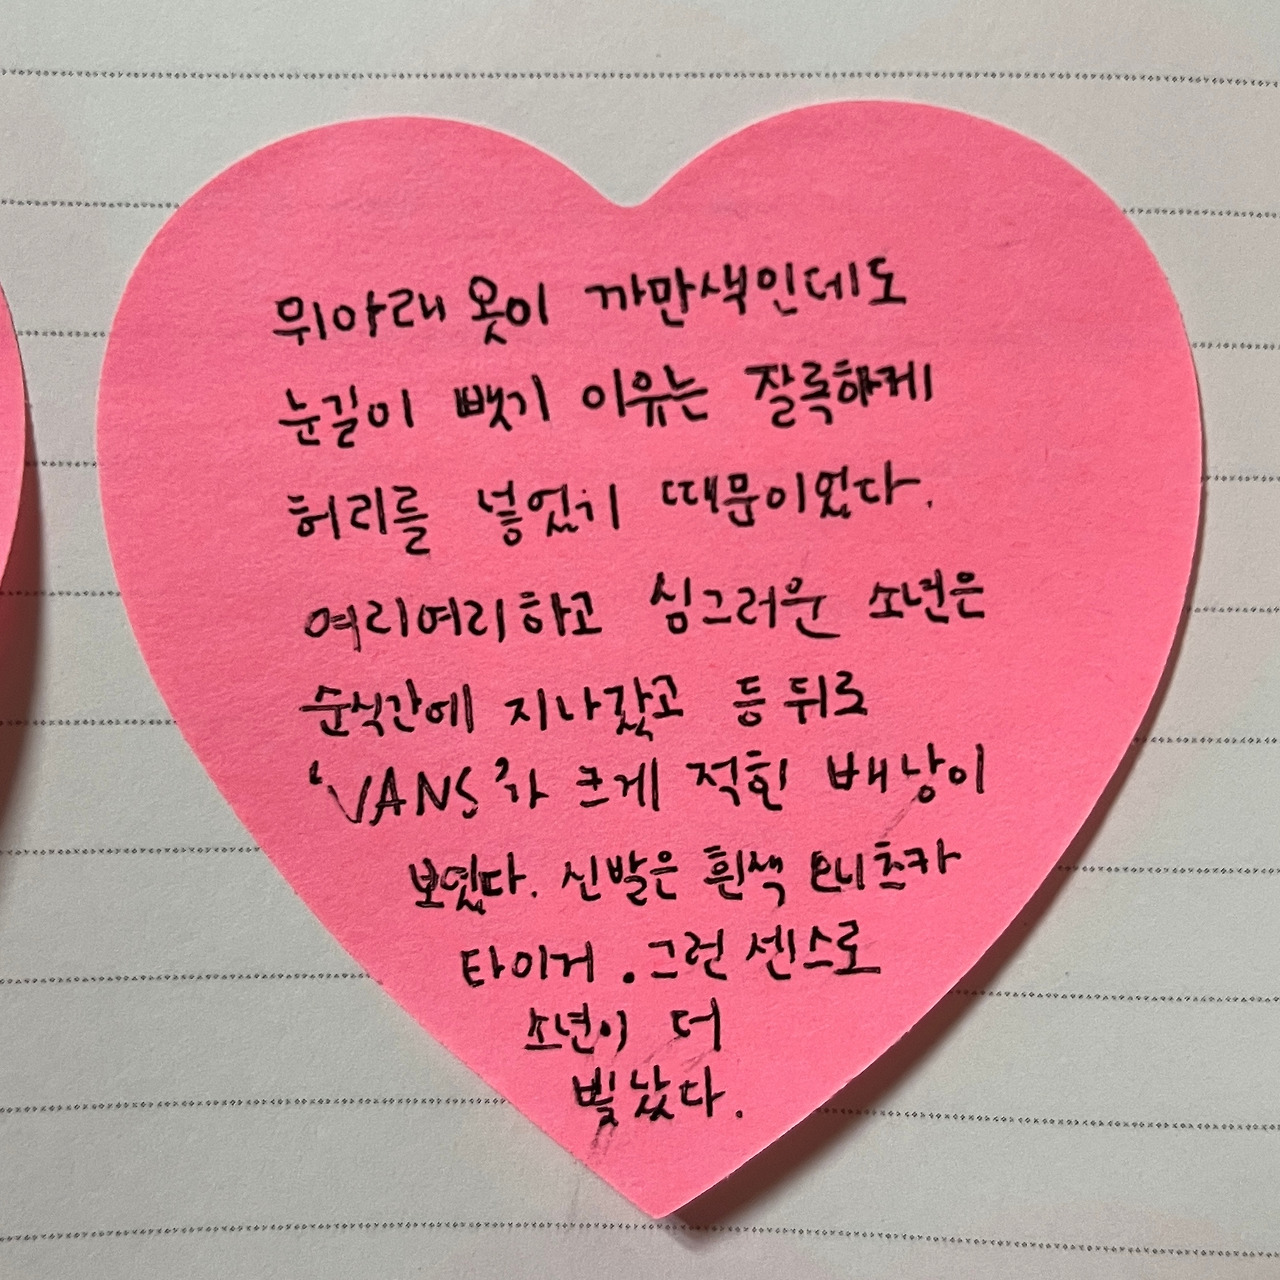 위아래 옷이 까만색인데도
눈길이 뺏기 이유는 잘록하게
허리를 넣었기 때문이었다.
여리여리하고 싱그러운 소년은
순식간에 지나갔고 등 뒤로
'VANS'가 크게 적힌 배낭이
보였다. 신발은 흰색 오니츠카
타이거. 그런 센스로
소년이 더
빛났다.